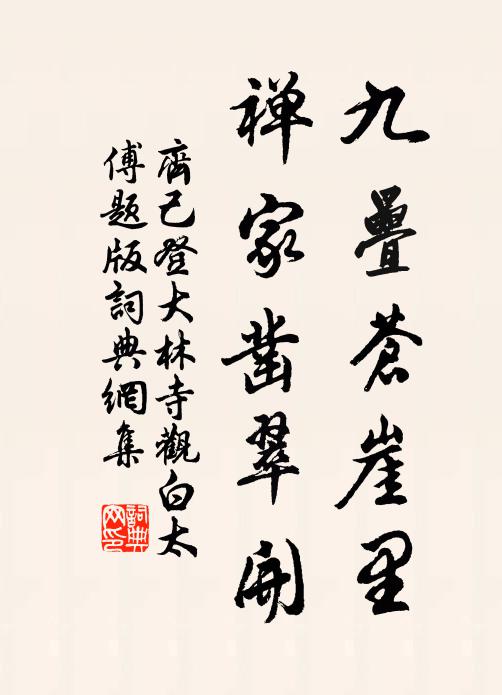 九疊蒼崖里
禅家凿翠開
齊己登大林寺觀白太
傅题版詞典網集
詞典网印